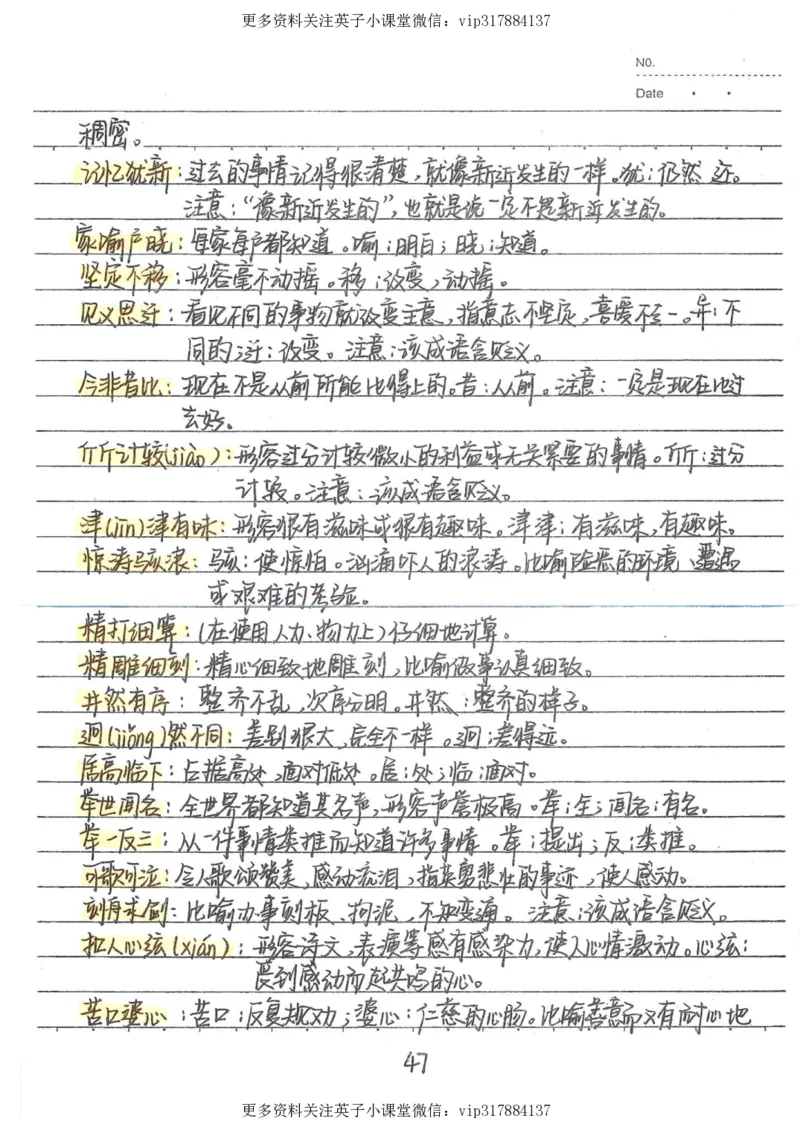 更多资料关注英子小课堂微信：vip317884137
NO.
Date
稠密。
记忆犹新：过去的事情记得很清楚，就像新近发生的一样。犹：仍然 还。
注意："像新近发生的"，也就是说一定不是新近发生的。
家喻户晓：每家每户都知道。喻：明白；晓：知道。
坚定不移：形容毫不动摇。移：改变，动摇。
见义思迁：看见不同的事物就改变主意，指意志不坚定，喜爱不专一。异：不
同的；迁：改变。注意：该成语含贬义。
今非昔比：现在不是从前所能比得上的。昔：从前。注意：一定是现在比过
去好。
斤斤计较(jiào)：形容过分计较微小的利益或无关紧要的事情。斤斤：过分
计较。注意：该成语含贬义。
津(jīn)津有味：形容很有滋味或很有趣味。津津：有滋味，有趣味。
惊涛骇浪：骇：使惊怕。汹涌吓人的浪涛。比喻险恶的环境 遭遇
或艰难的考验。
精打细算：(在使用人力、物力上)仔细地计算。
精雕细刻：精心细致地雕刻，比喻做事认真细致。
井然有序：整齐不乱，次序分明。井然：整齐的样子。
迥(jiǒng)然不同：差别很大，完全不一样。迥：差得远。
居高临下：占据高处，面对低处。居：处；临：面对。
举世闻名：全世界都知道其名声，形容声誉极高。举：全；闻名：有名。
举一反三：从一件事情类推而知道许多事情。举：提出；反：类推。
可歌可泣：令人歌颂赞美，感动流泪，指英勇悲壮的事迹，使人感动。
刻舟求剑：比喻办事刻板、拘泥，不知变通。注意：该成语含贬义。
扣人心弦(xián)：形容诗文，表演等感有感染力，使人心情激动。心弦：
受到感动而起共鸣的心。
苦口婆心：苦口：反复规劝；婆心：仁慈的心肠。比喻善意而又有耐心地
47
更多资料关注英子小课堂微信：vip317884137